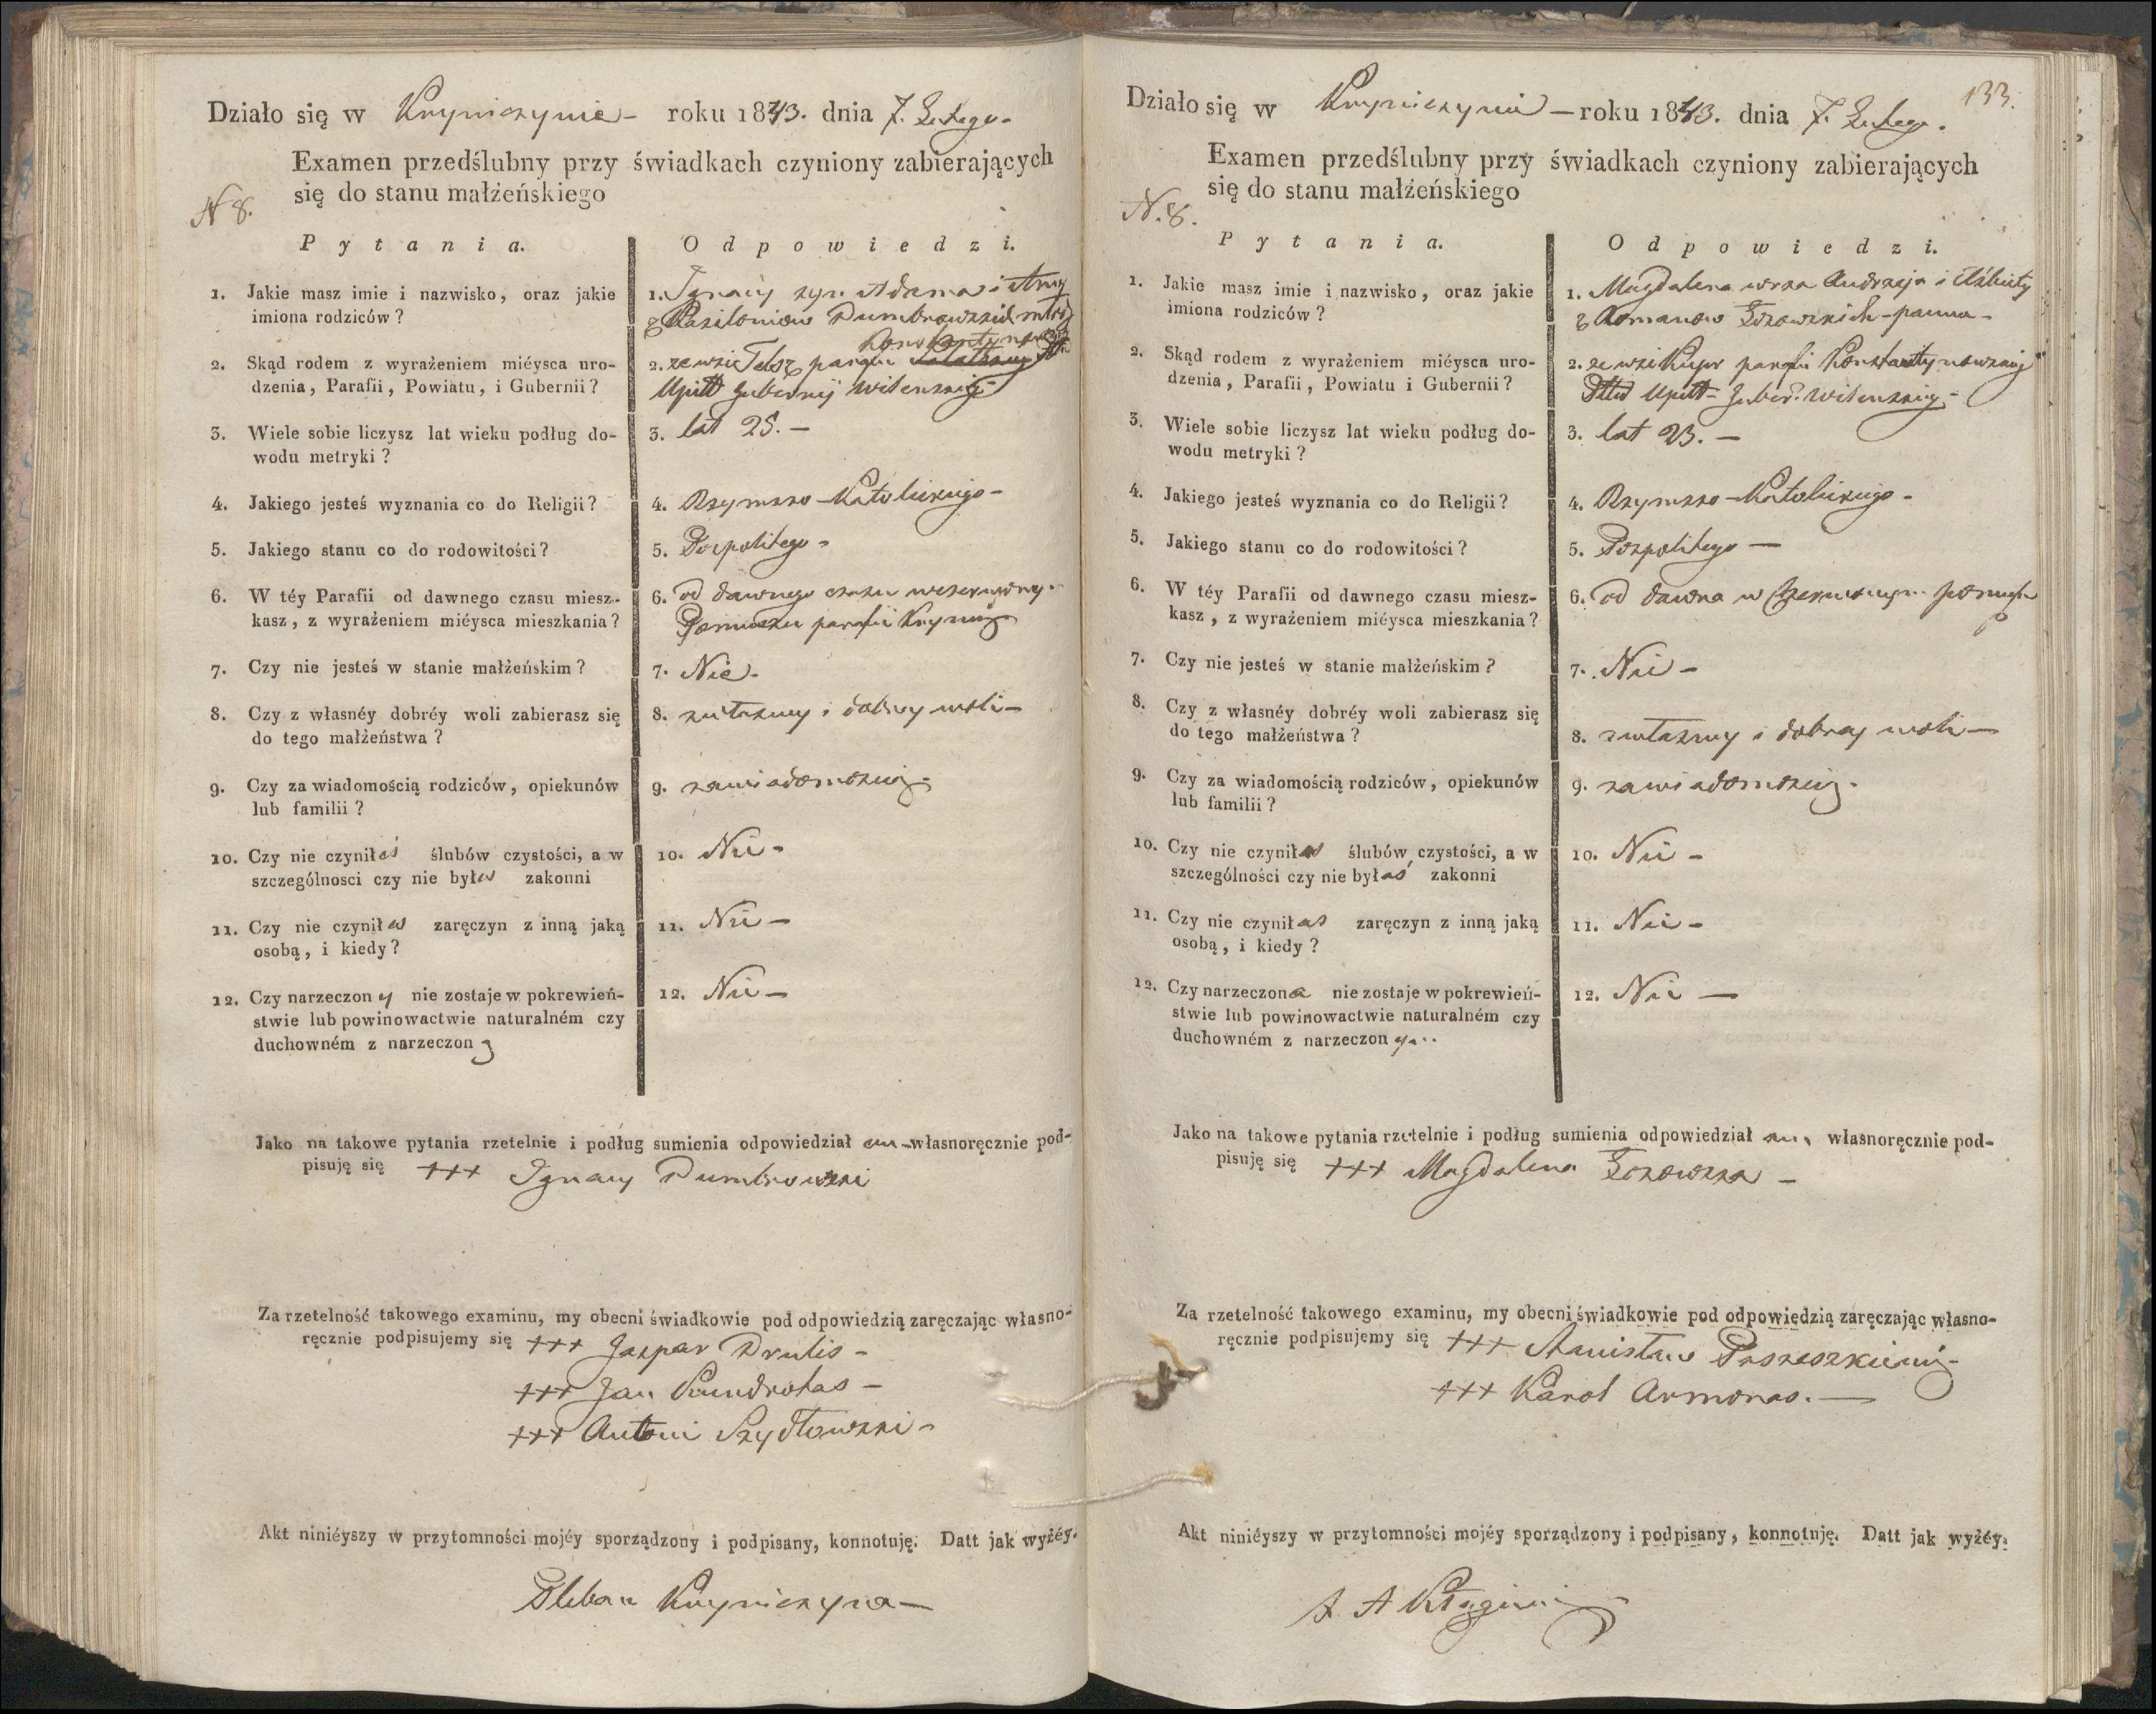 Działo się w Kryniczynie - roku 1843. dnia 7. Lutego -
Examen przedślubny przy świadkach czyniony zabierających
się do stanu małżeńskiego
N 8.
Pytania. Odpowiedzi.
1. Jakie masz imie i nazwisko, oraz jakie
imiona rodziców?
1. Ignacy syn Adama i Anny
z Dumbrowskich
2. Skąd rodem z wyrażeniem miéysca uro-
dzenia, Parafii, Powiatu, i Gubernii?
2. ze wsi parafii
Upitt Gubernij Wilenskiej
3. Wiele sobie liczysz lat wieku podług do-
wodu metryki?
3. lat 25. -
4. Jakiego jesteś wyznania co do Religii?
4. Rzymsko - Katolickiego -
5. Jakiego stanu co do rodowitości?
5. Pospolitego -
6. W téy Parafii od dawnego czasu miesz-
kasz, z wyrażeniem miéysca mieszkania?
6. od dawnego czasu
Pomuszu parafii
7. Czy nie jesteś w stanie małżeńskim?
7. Nie -
8. Czy z własnéy dobréy woli zabierasz się
do tego małżeństwa?
8. zwłasney i dobrey woli -
9. Czy za wiadomością rodziców, opiekunów
lub familii?
9. zawiadomością -
10. Czy nie czyniłeś ślubów czystości, a w
szczególnosci czy nie byłeś zakonni
10. Nie -
11. Czy nie czyniłeś zaręczyn z inną jaką
osobą, i kiedy?
11. Nie -
12. Czy narzeczony nie zostaje w pokrewień-
stwie lub powinowactwie naturalném czy
duchowném z narzeczoną
12. Nie -
Jako na takowe pytania rzetelnie i podług sumienia odpowiedziałem - własnoręcznie pod-
pisuję się +++ Ignacy Dumbrowski
Za rzetelność takowego examinu, my obecni świadkowie pod odpowiedzią zaręczając własno-
ręcznie podpisujemy się +++ Jazpar Drulis -
+++ Jan Kundrotas -
+++ Antoni Szydłowski -
Akt niniéyszy w przytomności mojéy sporządzony i podpisany, konnotuję. Datt jak wyżéy.
Pleban Kryniczyna -
133.
Działo się w Kryniczynie - roku 1843. dnia 7. Lutego.
Examen przedślubny przy świadkach czyniony zabierających
się do stanu małżeńskiego
N. 8.
Pytania. Odpowiedzi.
1. Jakie masz imie i nazwisko, oraz jakie
imiona rodziców?
1. Magdalena Andrzeja i Elżbiety
z Romanow - panna -
2. Skąd rodem z wyrażeniem miéysca uro-
dzenia, Parafii, Powiatu i Gubernii?
2. ze wsi parafii Konstantynowskiej
Upitt - Guber. Wilenskiej -
3. Wiele sobie liczysz lat wieku podług do-
wodu metryki?
3. lat 23. -
4. Jakiego jesteś wyznania co do Religii?
4. Rzymsko - Katolickiego -
5. Jakiego stanu co do rodowitości?
5. Pospolitego -
6. W téy Parafii od dawnego czasu miesz-
kasz, z wyrażeniem miéysca mieszkania?
6. od dawna w
7. Czy nie jesteś w stanie małżeńskim?
7. Nie -
8. Czy z własnéy dobréy woli zabierasz się
do tego małżeństwa?
8. zwłasney i dobrey woli -
9. Czy za wiadomością rodziców, opiekunów
lub familii?
9. zawiadomością -
10. Czy nie czyniłaś ślubów czystości, a w
szczególności czy nie byłaś zakonni
10. Nie -
11. Czy nie czyniłaś zaręczyn z inną jaką
osobą, i kiedy?
11. Nie -
12. Czy narzeczona nie zostaje w pokrewień-
stwie lub powinowactwie naturalném czy
duchowném z narzeczonym
12. Nie -
Jako na takowe pytania rzetelnie i podług sumienia odpowiedziałam, własnoręcznie pod-
pisuję się +++ Magdalena
Za rzetelność takowego examinu, my obecni świadkowie pod odpowiędzią zaręczając własno-
ręcznie podpisujemy się +++ Stanisław
+++ Karol Armonas. -
Akt niniéyszy w przytomności mojéy sporządzony i podpisany, konnotuję. Datt jak wyżéy.